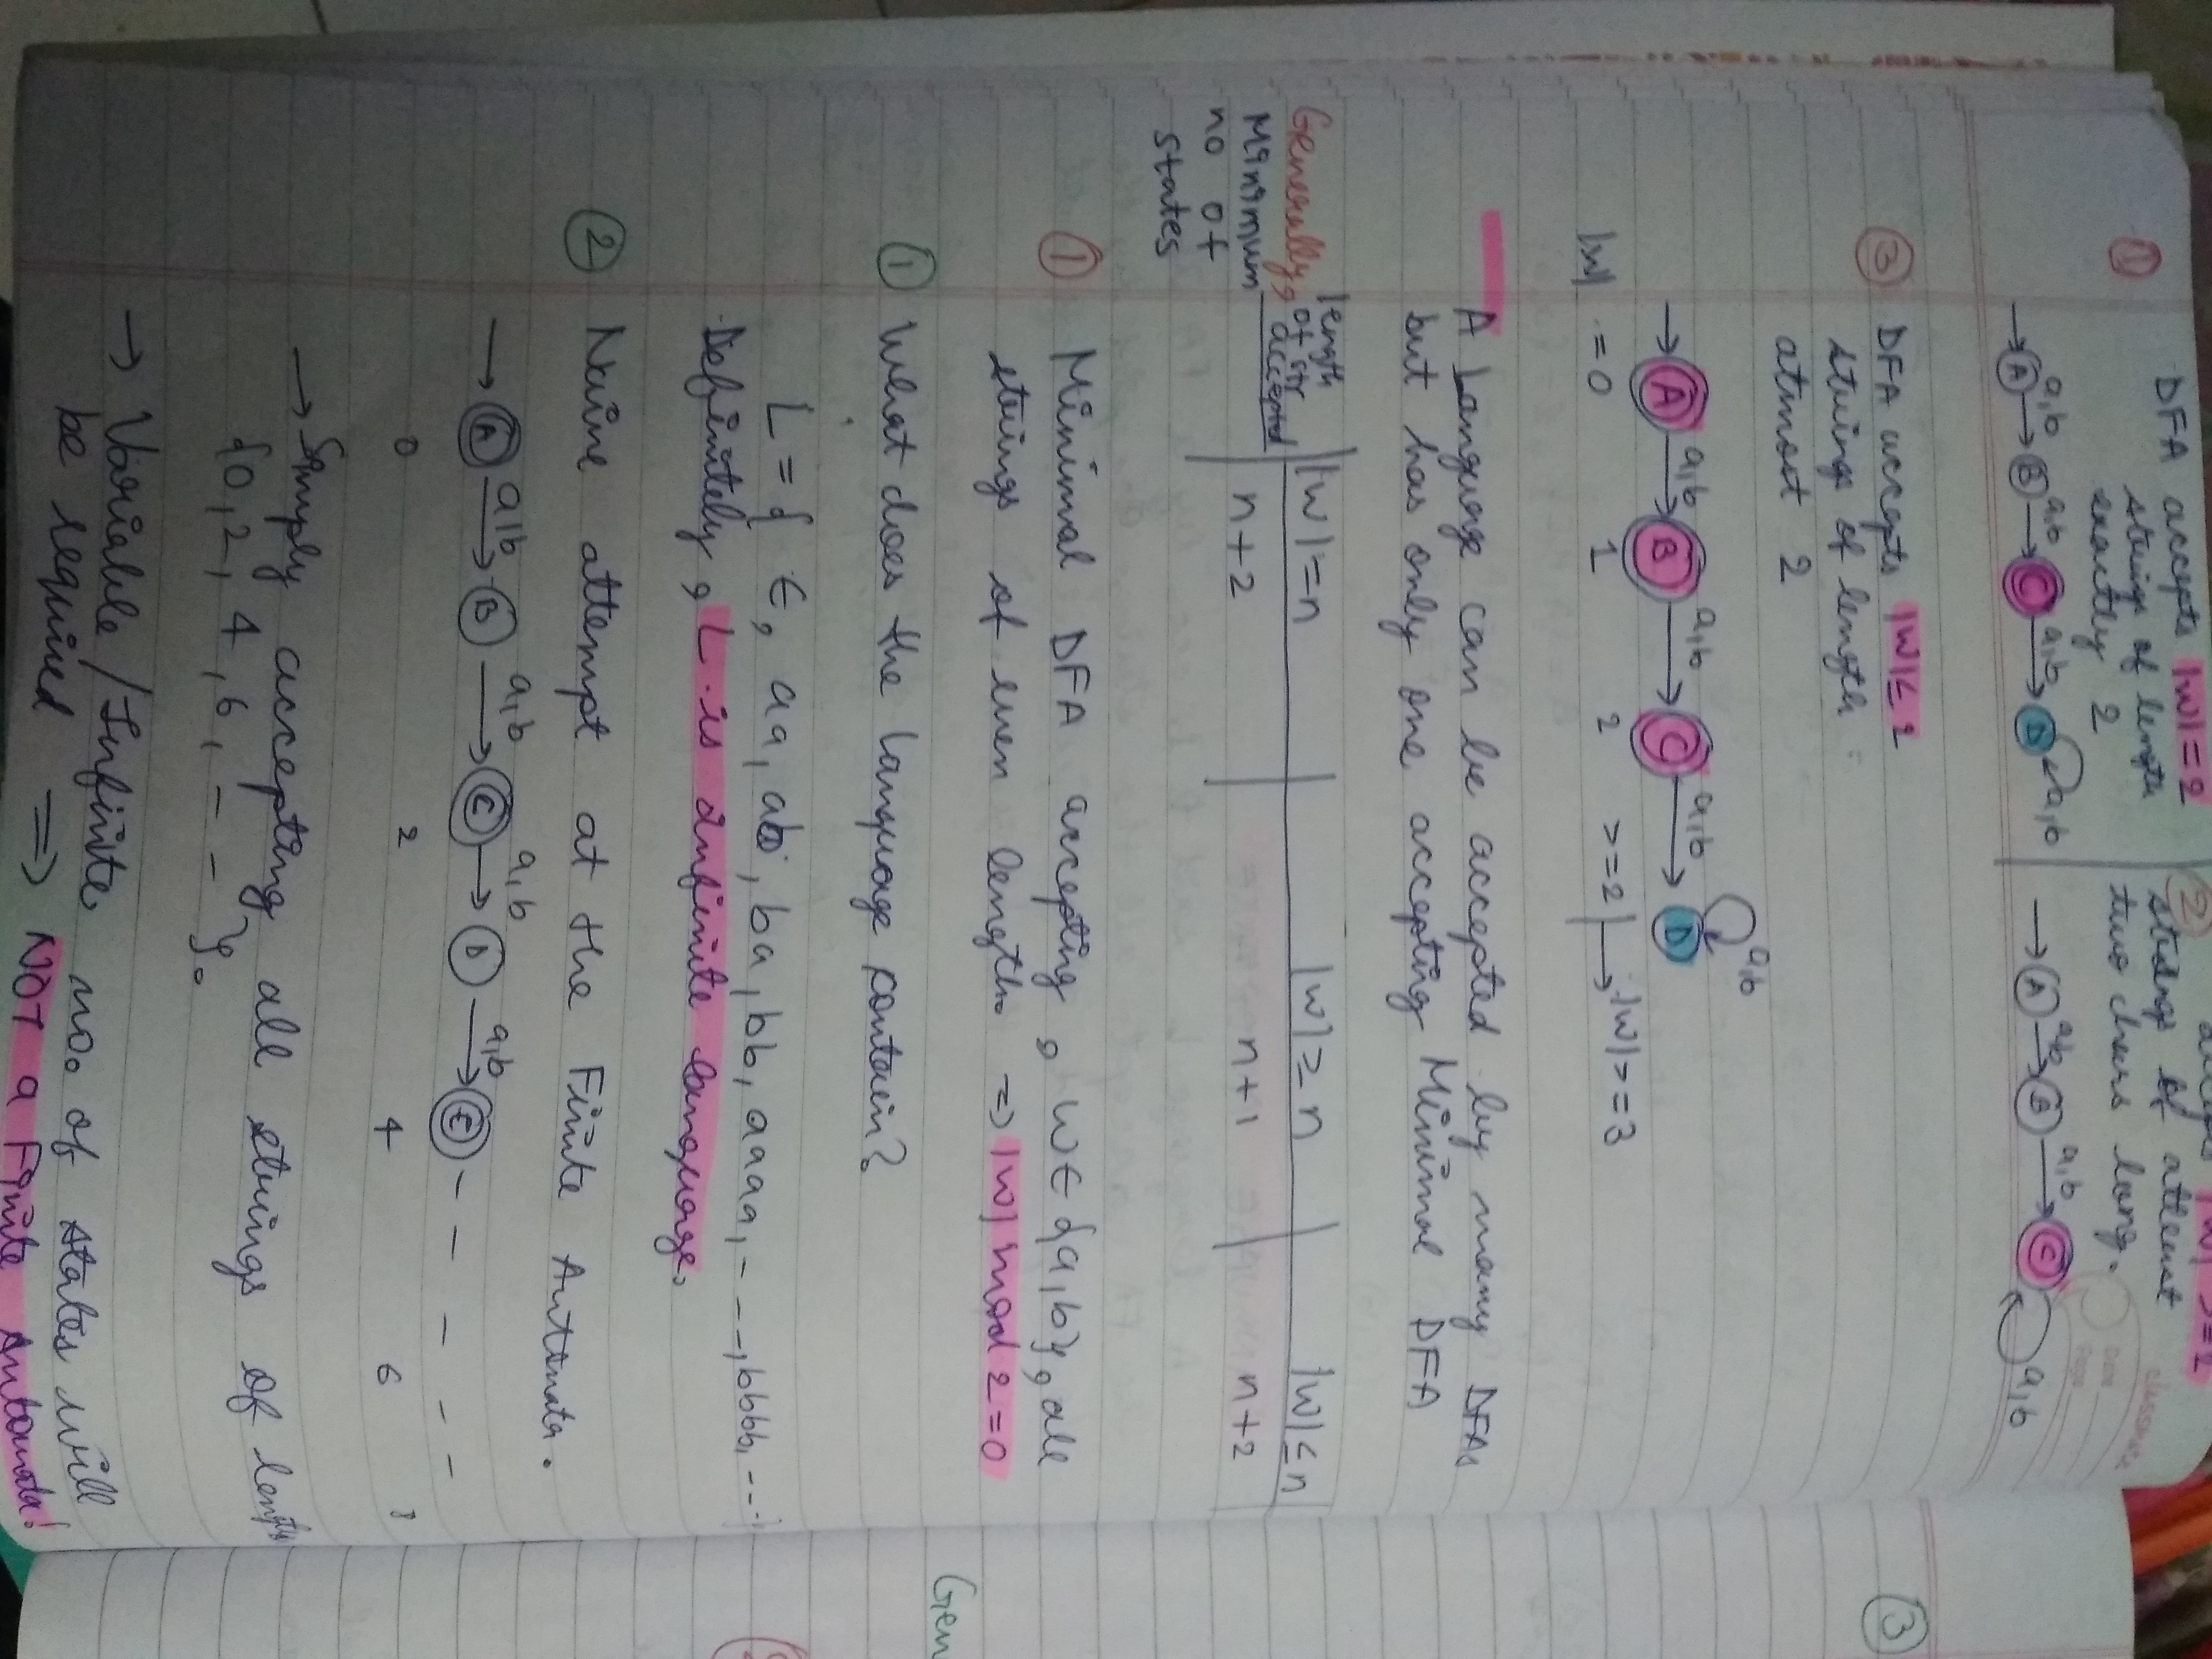 ① DFA accepts |w|=2
string of length
exactly 2
→ A a,b → B a,b → C a,b → D a,b
② |w| >=2
strings of atleast
two chars long.
→ A a,b → B a,b → C a,b
classmate
Date
Page
③ DFA accepts |w|≤2
strings of length
atmost 2
→ A a,b → B a,b → C a,b → D a,b
|w| = 0 1 2 >=2 | → |w|>=3
A Language can be accepted by many DFAs
but has only one accepting Minimal DFA
Generally, length of str accepted | |w|=n | |w|≥n | |w|≤n
Minimum no of states | n+2 | n+1 | n+2
① Minimal DFA accepting, w∈{a,b}, all
strings of even length. ⇒ |w| mod 2=0
① What does the language contain?
L={ ε, aa, ab, ba, bb, aaaa, ---, bbbb, ---}
Definitely, L is infinite language.
② Naive attempt at the Finite Automata.
→ A a,b → B a,b → C a,b → D a,b → E - - - - -
0 2 4 6
→ Simply accepting all strings of length
{0, 2, 4, 6, - - }.
→ Variable/Infinite no. of states will
be required ⇒ NOT a Finite Automata!
③
Gen